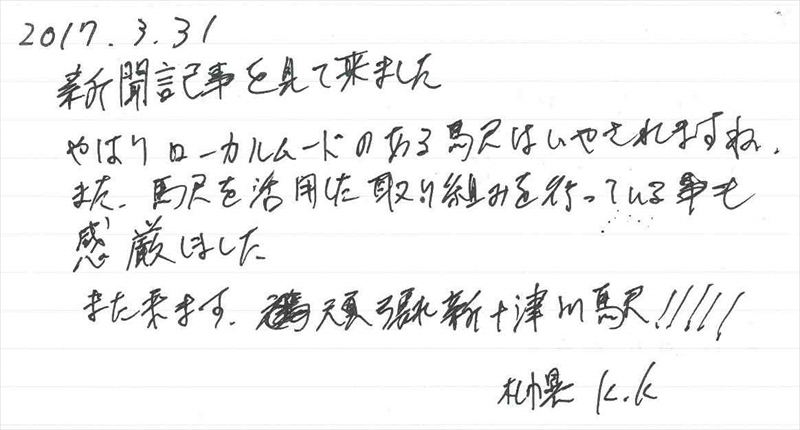 2017.3.31
新聞記事を見て来ました
やはりローカルムードのある駅はいやされますね.
また.駅を活用した取り組みを行っている事も
感厳しました
また来ます.頑張れ新十津川駅!!!!!
札幌 K.K